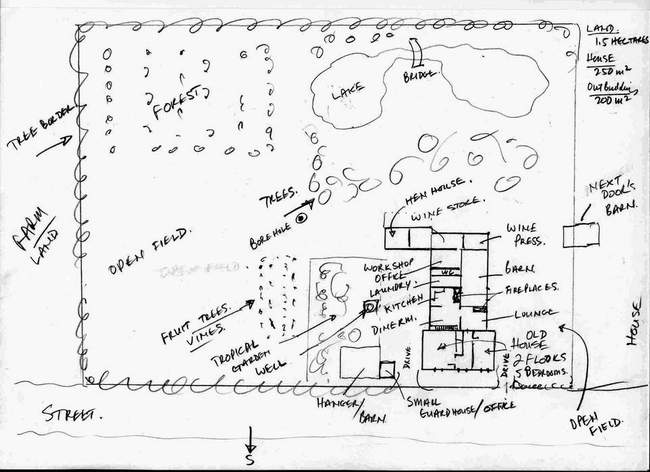 LAND.
1.5 HECTARES
HOUSE
250 m²
OUTBUILDING
200 m²
BRIDGE.
LAKE
FOREST
TREE BORDER
FARM
LAND
TREES.
BOREHOLE
HEN HOUSE.
WINE STORE.
NEXT
DOOR'S
BARN.
WINE
PRESS.
OPEN FIELD.
WORKSHOP
OFFICE
LAUNDRY.
WC
KITCHEN
DINERM.
BARN
FIREPLACES.
LOUNGE
HOUSE
FRUIT TREES.
VINES.
TROPICAL
GARDEN
WELL
DRIVE
OLD
HOUSE
2 FLOORS
5 BEDROOMS.
DRIVE
HANGER/
BARN.
SMALL
GUARDHOUSE/OFFICE
OPEN
FIELD.
STREET.
S